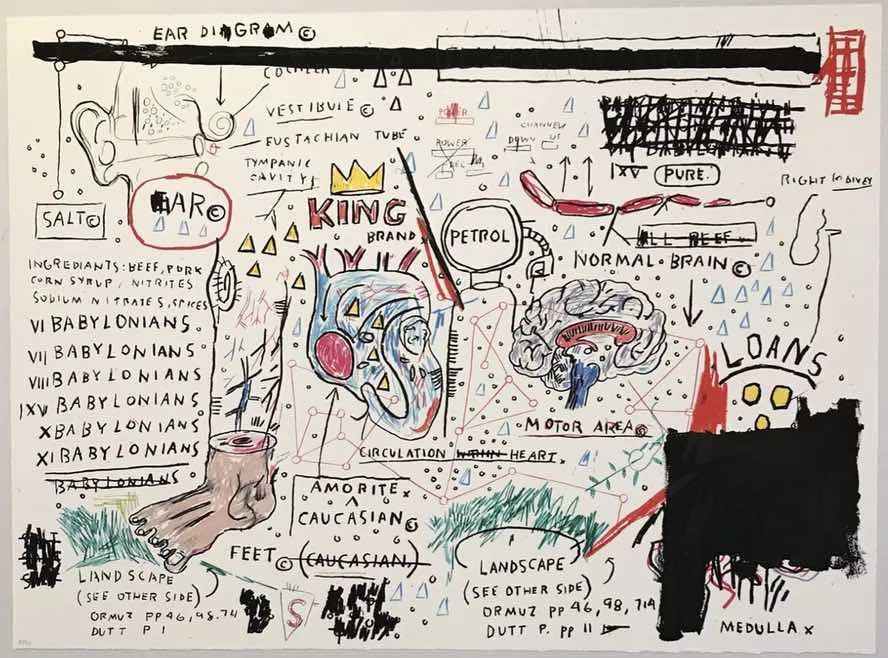 EAR DIAGRAM©
COCHLEA
VESTIBULE ©
EUSTACHIAN TUBE
TYMPANIC
CAVITY
SALT©
EAR©
KING
BRAND
POWER
CHANNEL
DOWN UP
POWER
PETROL
IXV PURE.
ALL BEEF
NORMAL BRAIN ©
RIGHT
INGREDIANTS: BEEF, PORK
CORN SYRUP, NITRITES
SODIUM NITRATES, SPICES
VI BABYLONIANS.
VII BABYLONIANS
VIII BABYLONIANS
IXV BABYLONIANS
X BABYLONIANS
XI BABYLONIANS
BABYLONIANS
LOANS
MOTOR AREA©
CIRCULATION WITHIN HEART
AMORITE x
^
CAUCASIAN ©
FEET © (CAUCASIAN)
LANDSCAPE
(SEE OTHER SIDE)
ORMUZ PP 46, 98. 714
DUTT P I
S
LANDSCAPE
(SEE OTHER SIDE)
ORMUZ PP 46, 98, 714
DUTT P. PP 11
MEDULLA x